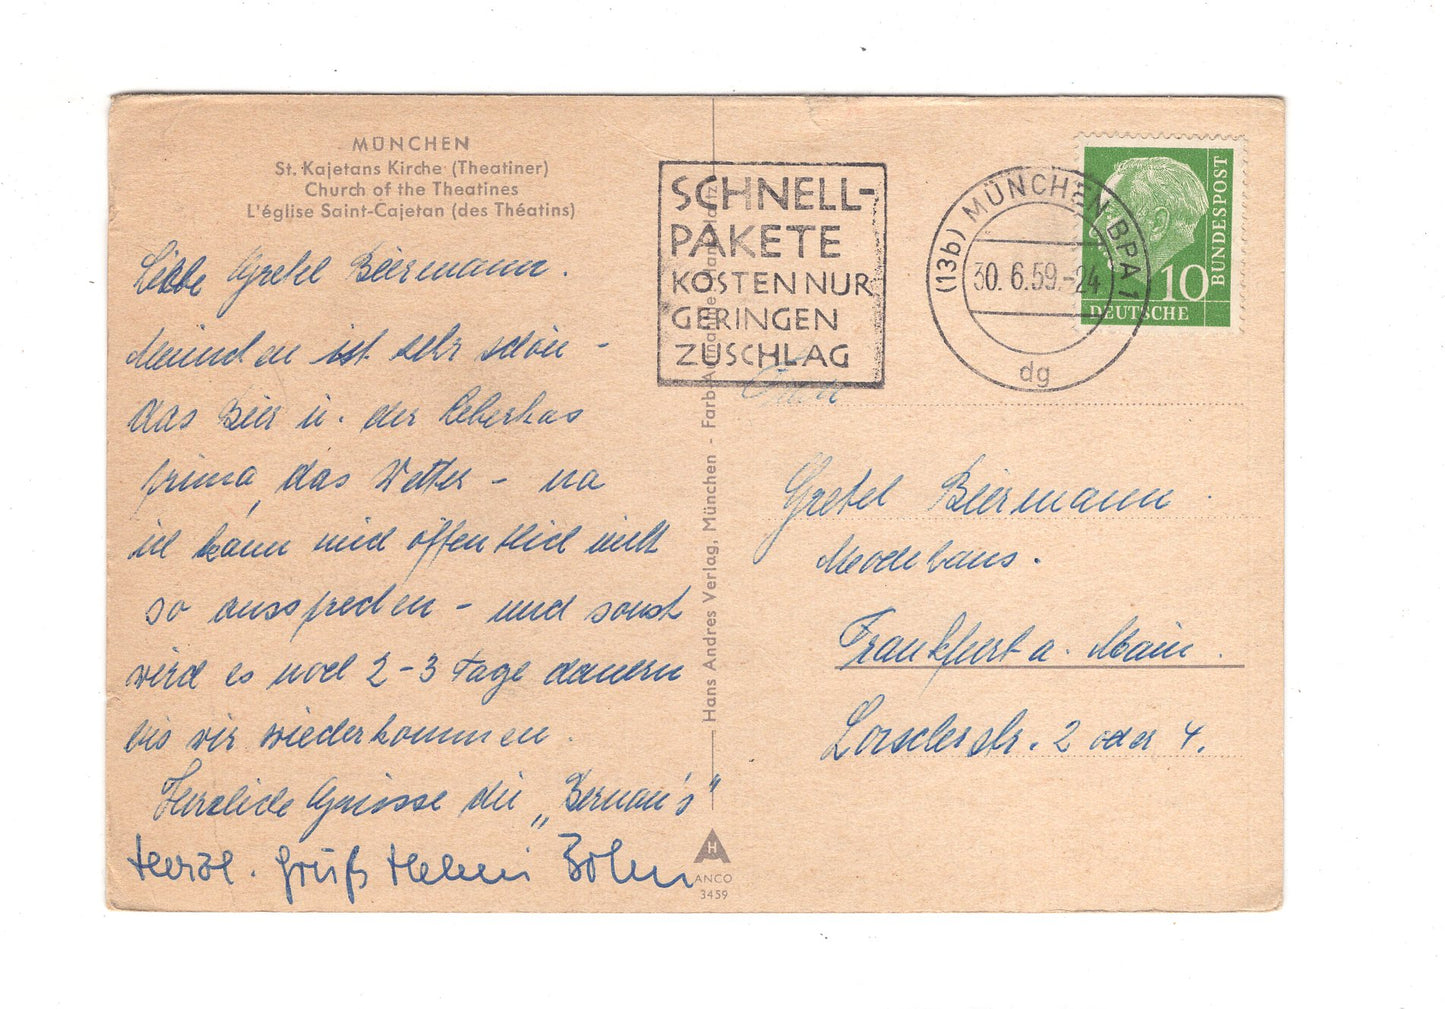 MÜNCHEN
St. Kajetans Kirche (Theatiner)
Church of the Theatines
L'église Saint-Cajetan (des Théatins)
Liebe Gretel Biermann.
München ist sehr schön -
das Bier u. der Leberkas
prima, das Wetter - na
ich kann mich öffentlich nicht
so aussprechen - und sonst
wird es noch 2-3 Tage dauern
bis wir wiederkommen.
Herzliche Grüsse die „
Herzl. Grüß
Hans Andres Verlag, München - Farb-Aufnahme
H
ANCO
3459
SCHNELL-
PAKETE
KOSTEN NUR
GERINGEN
ZUSCHLAG
(13b) MÜNCHEN BPA 1
30. 6.59.-24
dg
10
DEUTSCHE
BUNDESPOST
Gretel Biermann.
Modehaus.
Frankfurt a. Main.
Lorscherstr. 2 oder 4.